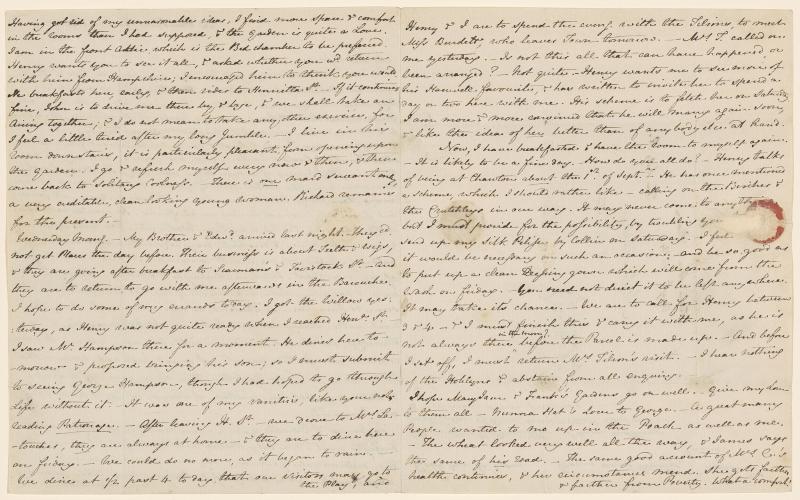 Having got rid of my unreasonable ideas, I find more space & comfort
in the rooms than I had supposed, & the Garden is quite a Love.
I am in the front Attic, which is the Bed chamber to be preferred.
Henry wants you to see it all, & asked whether you wd return
with him from Hampshire; I encouraged him to think you would.
He breakfasts here, early, & then rides to Henrietta St. If it continues
fine, John is to drive me there by & bye, & we shall take an
Airing together; & I do not mean to take any other exercise, for
I feel a little tired after my long Jumble. - I live in his
room downstairs, it is particularly pleasant, from opening upon
the Garden. I go & refresh myself every now & then, & then
come back to Solitary Coolness. There is one maid servant only,
a very creditable, cleanlooking young Woman. Richard remains
for the present. -
Wednesday Morng. - My Brother & Edwd. arrived last night. They cd
not get Places the day before. Their business is about Teeth & Wigs,
& they are going after breakfast to Scarmans & Tavistock St. - and
they are to return to go with me afterwards in the Barouche.
I hope to do some of my errands today. I got the Willow yes-
terday, as Henry was not quite ready when I reached Hena. St.
I saw Mr. Hampson there for a moment. He dines here to-
-morrow & proposed bringing his son; so I must submit
to seeing George Hampson, though I had hoped to go through
Life without it. - It was one of my vanities, like your not
reading Patronage. - After leaving H. St. we drove to Mrs La-
-touches, they are always at home - & they are to dine here
on friday. - We could do no more, as it began to rain. -
We dine at 1/2 past 4 to day, that our visitors may go to
the Play, and
Henry & I are to spend the eveng. with the Tilsons, to meet
Miss Burdett, who leaves Town tomorrow. - Mrs T. called on
me yesterday. - Is not this all that can have happened, or
been arranged? - Not quite. - Henry wants me to see more of
his Hanwell favourite, & has written to invite her to spend a
day or two here with me. His scheme is to fetch her on Saturday.
I am more & more convinced that he will marry again soon,
& like the idea of her better than of anybody else at hand.
Now, I have breakfasted & have the room to myself again.
- It is likely to be a fine day. - How do you all do? - Henry talks
of being at Chawton about the 1st of Septr. - He has once mentioned
a scheme, which I should rather like - calling on the Birches &
the Crutchleys in our way. It may never come to anything,
but I must provide for the possibility, by troubling you
send up my Silk Pelisse by Collier on Saturday. - I feel
it would be necessary on such an occasion; - and be so good as
to put up a clean Dressing gown which will come from the
Wash on friday. - You need not direct it to be left anywhere.
It may take its chance. - We are to call for Henry between
3 & 4 - & I must finish this & carry it with me, as he is
not always there in the morng before the Parcel is made up. - And before
I set off, I must return Mrs Tilson's visit. - I hear nothing
of the Hoblyns & abstain from all enquiry. -
I hope Mary Jane & Frank's Gardens go on well. - Give my love
to them all - Nunna Hat's Love to George. - A great many
People wanted to mo up in the Poach as well as me. -
The wheat looked very well all the way, & James says
the same of his road. - The same good account of Mrs C.'s
health continues, & her circumstances mend. She gets farther
& farther from Poverty. - What a comfort!